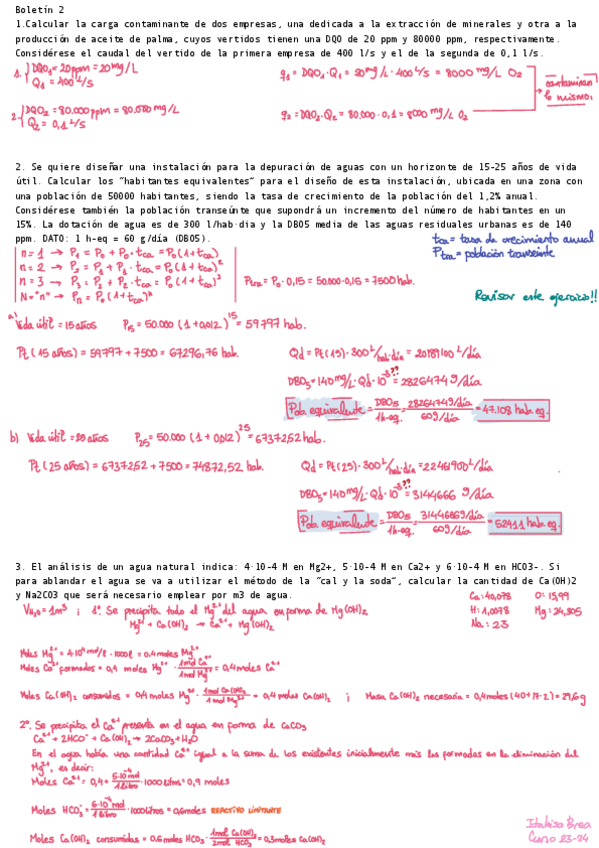 Boletín 2
1.Calcular la carga contaminante de dos empresas, una dedicada a la extracción de minerales y otra a la
producción de aceite de palma, cuyos vertidos tienen una DQO de 20 ppm y 80000 ppm, respectivamente.
Considérese el caudal del vertido de la primera empresa de 400 l/s y el de la segunda de 0,1 l/s.
1. { DQO1 = 20ppm = 20 mg/L
Q1 = 400 L/s
q1 = DQO1·Q1 = 20 mg/L · 400 L/s = 8000 mg/s O2
contaminan lo mismo.
2. { DQO2 = 80.000 ppm = 80.000 mg/L
Q2 = 0,1 L/s
q2 = DQO2·Q2 = 80.000·0,1 = 8000 mg/s O2
2. Se quiere diseñar una instalación para la depuración de aguas con un horizonte de 15-25 años de vida
útil. Calcular los "habitantes equivalentes" para el diseño de esta instalación, ubicada en una zona con
una población de 50000 habitantes, siendo la tasa de crecimiento de la población del 1,2% anual.
Considérese también la población transeúnte que supondrá un incremento del número de habitantes en un
15%. La dotación de agua es de 300 l/hab·dia y la DBO5 media de las aguas residuales urbanas es de 140
ppm. DATO: 1 h-eq = 60 g/día (DBO5).
tca = tasa de crecimiento anual
Ptra = población transeúnte
n = 1 → P1 = P0 + P0·tca = P0(1+tca)
n = 2 → P2 = P1 + P1·tca = P0(1+tca)²
n = 3 → P3 = P2 + P2·tca = P0(1+tca)³
N = "n" → Pn = P0(1+tca)ⁿ
Ptra = P0·0,15 = 50.000·0,15 = 7500 hab.
Revisar este ejercicio!!
a) Vida útil = 15 años P15 = 50.000 (1+0,012)^15 = 59797 hab.
Pt (15 años) = 59797 + 7500 = 67296,76 hab. Qd = Pt(15)·300 L/hab·día = 20189100 L/día
DBO5 = 140 mg/L · Qd · 10^-3 ?? = 2826474 g/día
Pob equivalente = DBO5 / 1h-eq. = 2826474 g/día / 60 g/día = 47.108 hab eq.
b) Vida útil = 25 años P25 = 50.000 (1+0,012)^25 = 67372,52 hab.
Pt (25 años) = 67372,52 + 7500 = 74872,52 hab. Qd = Pt(25)·300 L/hab·día = 22461900 L/día
DBO5 = 140 mg/L · Qd · 10^-3 ?? = 3144666 g/día
Pob equivalente = DBO5 / 1h-eq. = 3144666 g/día / 60 g/día = 52411 hab eq.
3. El análisis de un agua natural indica: 4·10-4 M en Mg2+, 5·10-4 M en Ca2+ y 6·10-4 M en HCO3-. Si
para ablandar el agua se va a utilizar el método de la "cal y la soda", calcular la cantidad de Ca(OH)2
y Na2CO3 que será necesario emplear por m3 de agua.
Ca: 40,078 O: 15,99
H: 1,0078 Mg: 24,305
Na: 23
VH2O = 1m³ ; 1º. Se precipita todo el Mg²⁺ del agua en forma de Mg(OH)2
Mg²⁺ + Ca(OH)2 → Ca²⁺ + Mg(OH)2
Moles Mg²⁺ = 4·10⁻⁴ mol/l · 1000 l = 0,4 moles Mg²⁺
Moles Ca²⁺ formados = 0,4 moles Mg²⁺ · 1mol Ca²⁺ / 1mol Mg²⁺ = 0,4 moles Ca²⁺
Moles Ca(OH)2 consumidos = 0,4 moles Mg²⁺ · 1mol Ca(OH)2 / 1mol Mg²⁺ = 0,4 moles Ca(OH)2 ; Masa Ca(OH)2 necesaria = 0,4 moles (40+17·2) = 29,6 g
2º. Se precipita el Ca²⁺ presente en el agua en forma de CaCO3
Ca²⁺ + 2HCO⁻ + Ca(OH)2 → 2CaCO3 + H2O
En el agua había una cantidad Ca²⁺ igual a la suma de los existentes inicialmente más los formados en la eliminación del
Mg²⁺, es decir:
Moles Ca²⁺ = 0,4 + 5·10⁻⁴ mol / 1 litro · 1000 litros = 0,9 moles
Moles HCO3⁻ = 6·10⁻⁴ mol / 1 litro · 1000 litros = 0,6 moles REACTIVO LIMITANTE
Moles Ca(OH)2 consumidas = 0,6 moles HCO3⁻ · 1mol Ca(OH)2 / 2mol HCO3⁻ = 0,3 moles Ca(OH)2
Curso 23-24